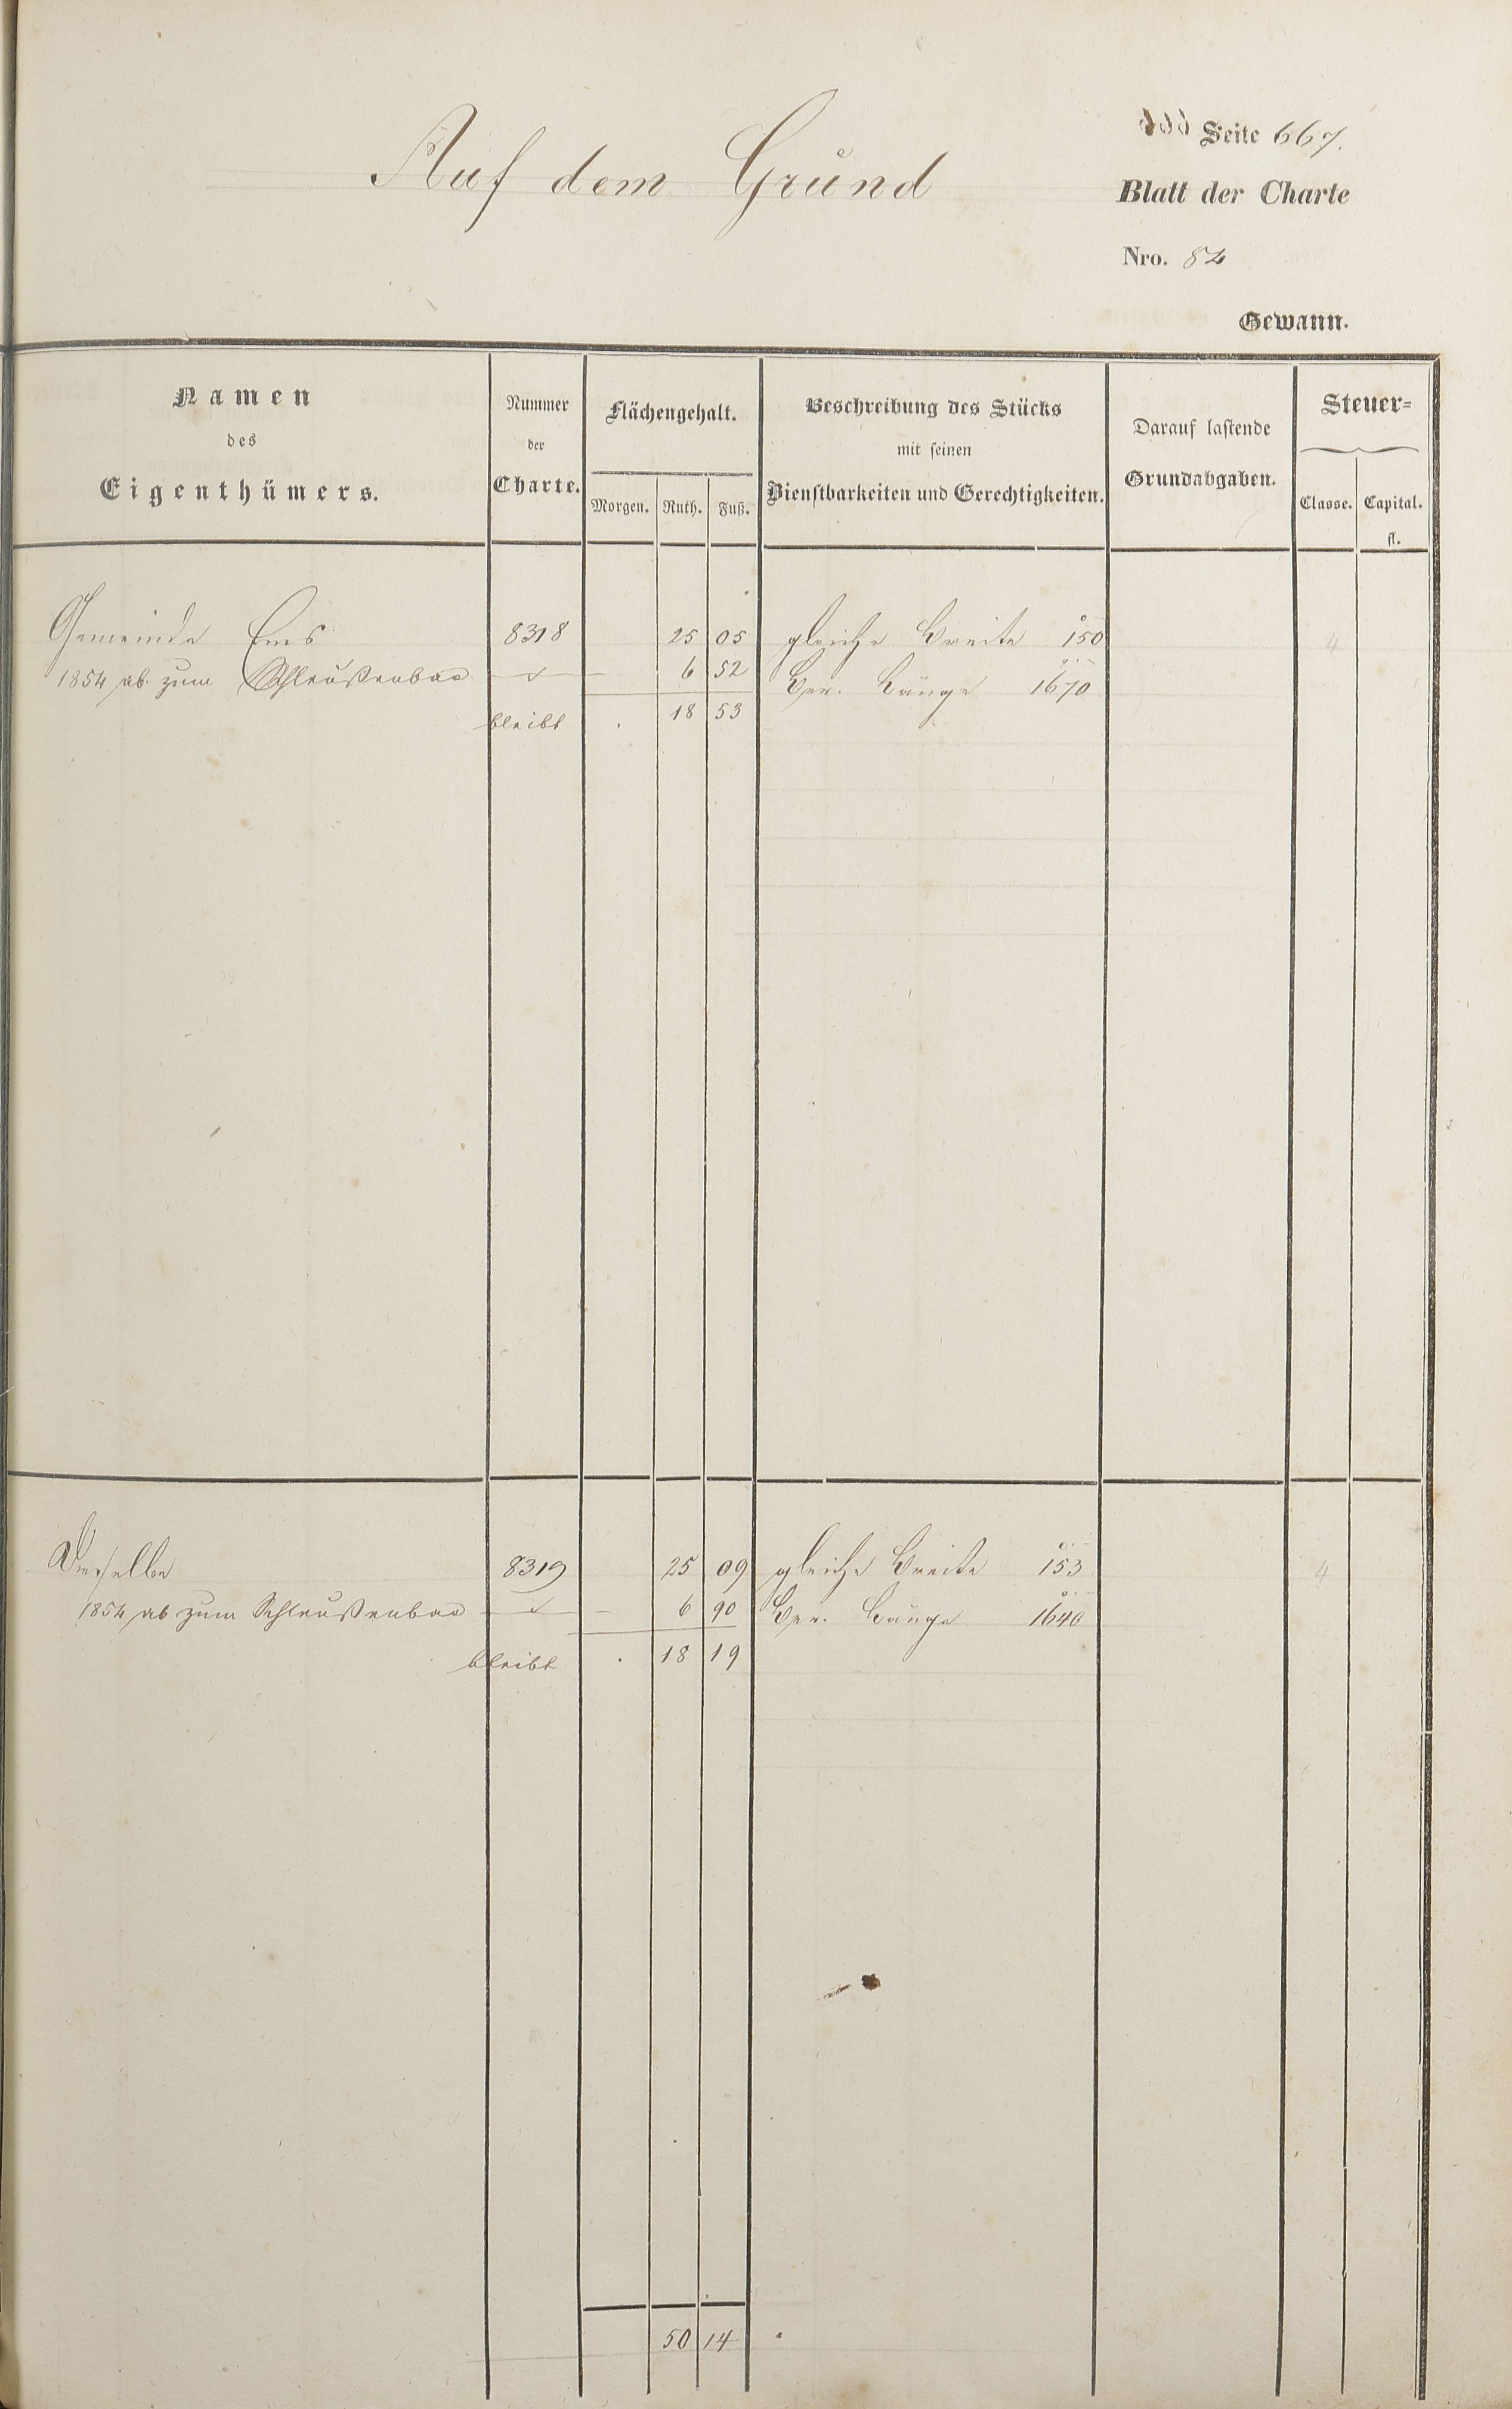 Auf dem Grund
Seite 667.
Blatt der Charte
Nro. 82
Gewann.
Namen des Eigenthümers.
Nummer der Charte.
Flächengehalt.
Morgen. Ruth. Fuß.
Beschreibung des Stücks mit seinen Dienstbarkeiten und Gerechtigkeiten.
Darauf lastende Grundabgaben.
Steuer=
Classe. Capital. fl.
Gemeinde Ems 8318 25 05 gleiche Breite 150 4
1854 ab zum Schleußenbau 6 52 Ver. Länge 1670
bleibt . 18 53
Dieselbe 8319 25 09 gleiche Breite 153 4
1854 ab zum Schleußenbau 6 90 Ver. Länge 1640
bleibt . 18 19
50 14